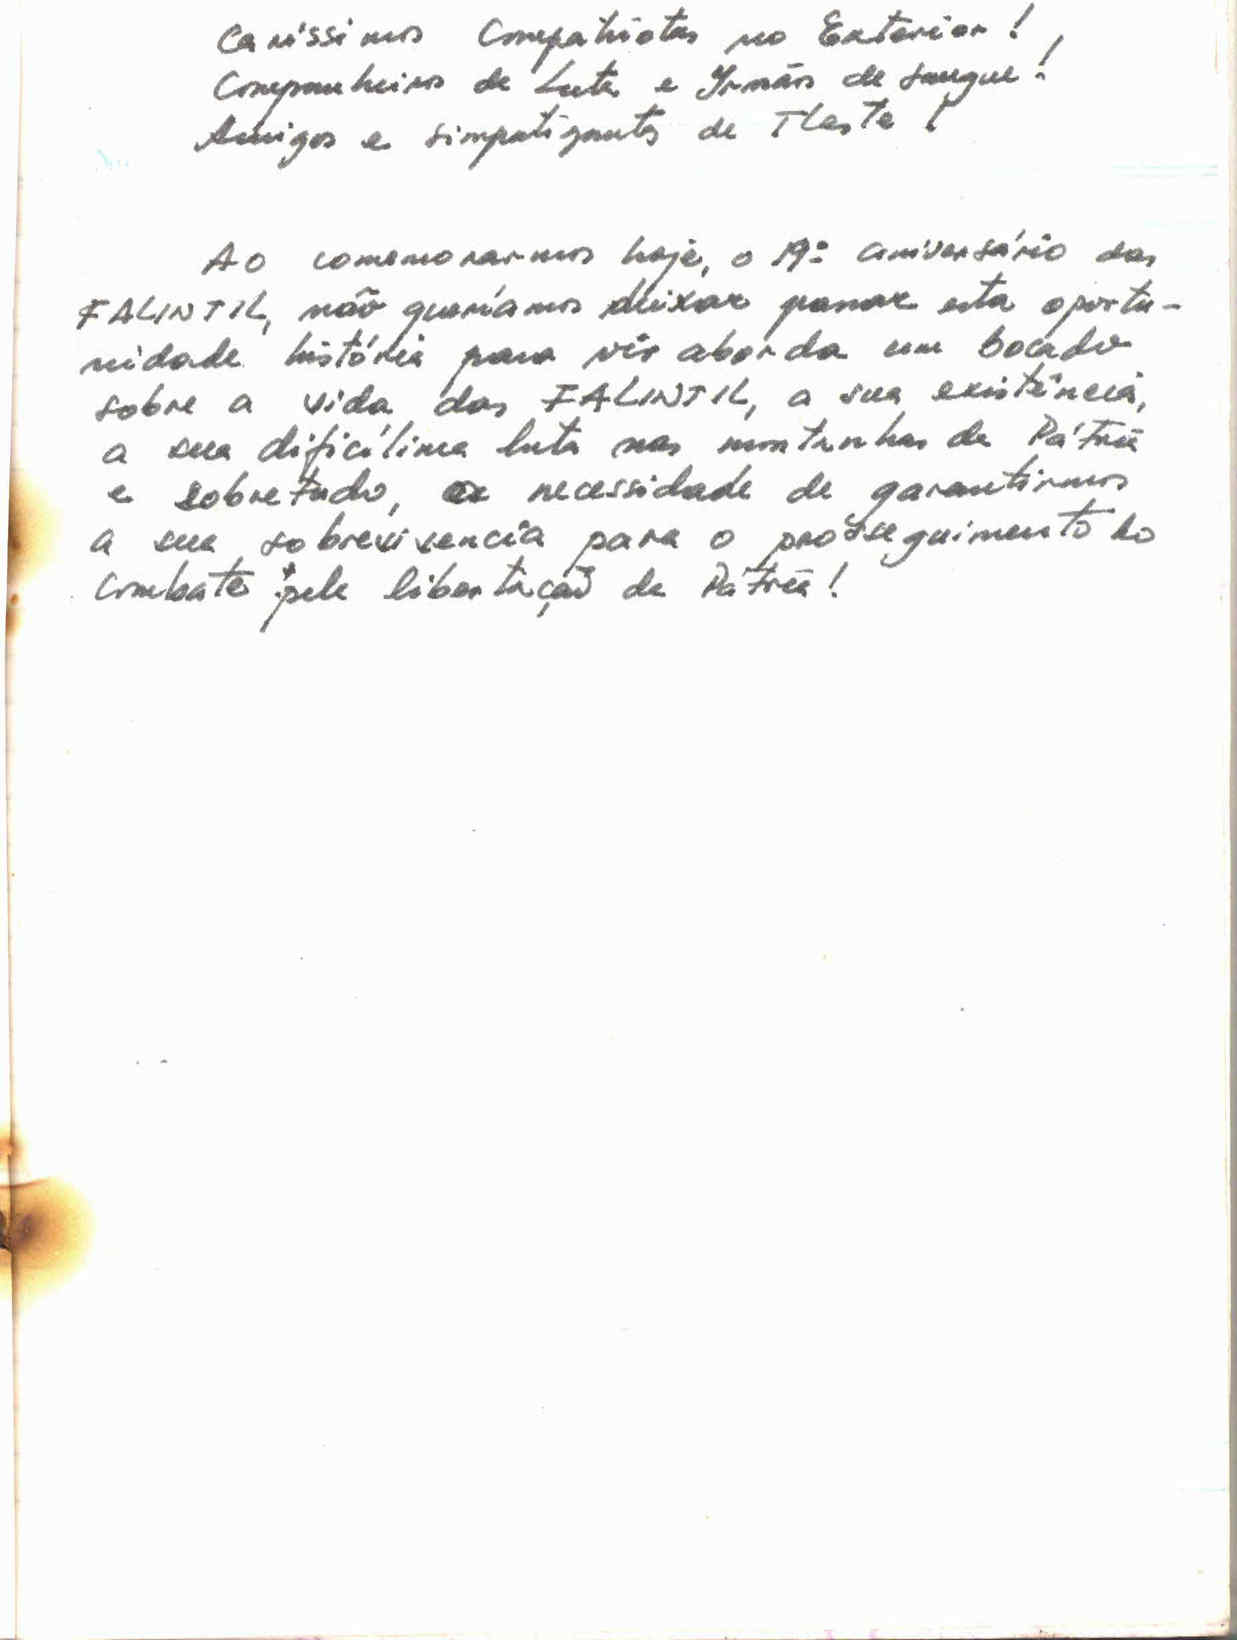 Caríssimos Compatriotas no Exterior!
Companheiros de Luta e Irmãos de Sangue!
Amigos e simpatizantes de TLeste!
Ao comemorarmos hoje, o 19º aniversário das
FALINTIL, não queríamos deixar passar esta oportu-
nidade história para vir aborda um bocado
sobre a vida das FALINTIL, a sua existência,
a sua dificílima luta nas montanhas da Pátria
e sobretudo, a necessidade de garantirmos
a sua sobrevivencia para o prosseguimento do
Combate pela libertação da Pátria!